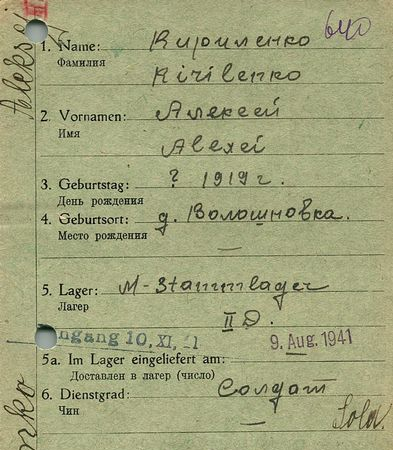 640
1. Name: Кириленко
Фамилия
Kirilenko
2. Vornamen: Алексей
Имя
Alexei
3. Geburtstag: ? 1919 г.
День рождения
4. Geburtsort: д. Волошновка.
Место рождения
—
5. Lager: M-Stammlager
Лагер
II D.
ngang 10, XI, 41
9. Aug. 1941
5a. Im Lager eingeliefert am:
Доставлен в лагер (число)
6. Dienstgrad: Солдат
Чин
—
Sold.